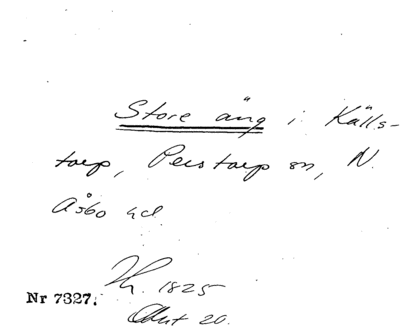 Store äng i Källs-
torp, Perstorp sn, N.
Åsbo hd
Nr 7327. 1825
Akt 20.